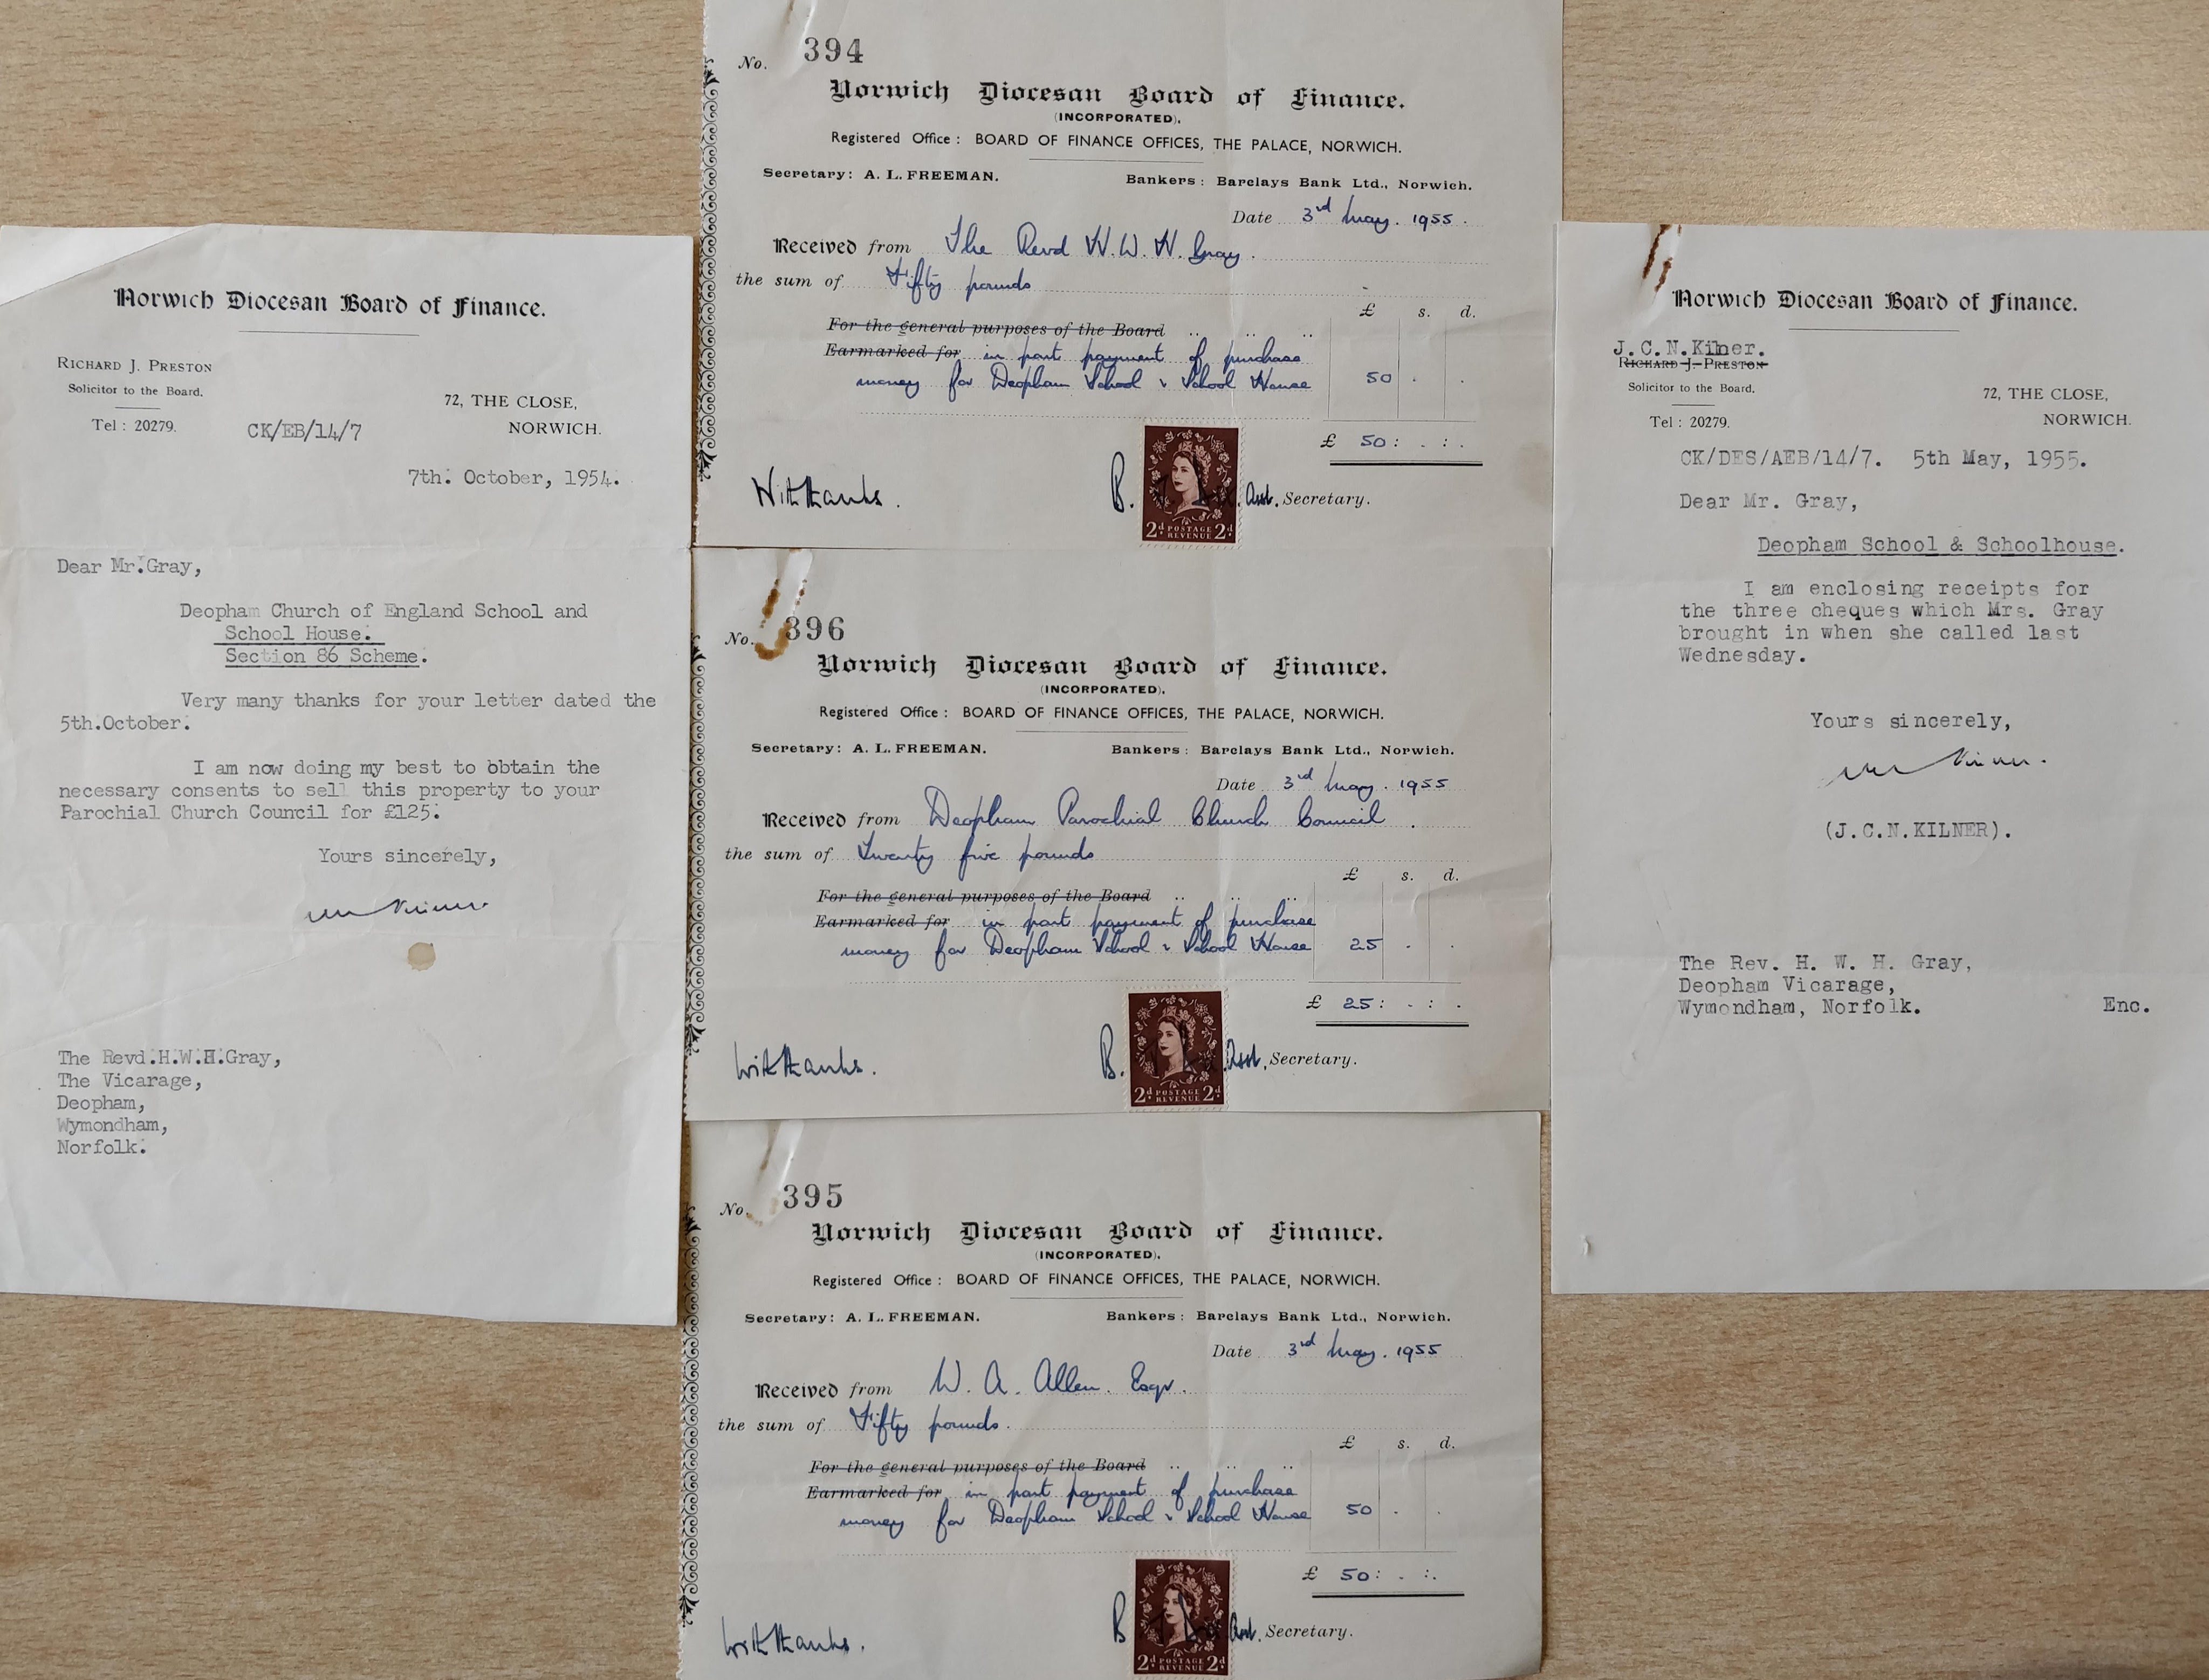 Norwich Diocesan Board of Finance.
RICHARD J. PRESTON
Solicitor to the Board.
Tel : 20279.
CK/EB/14/7
72, THE CLOSE,
NORWICH.
7th. October, 1954.
Dear Mr.Gray,
Deopham Church of England School and
School House.
Section 86 Scheme.
Very many thanks for your letter dated the
5th.October.
I am now doing my best to obtain the
necessary consents to sell this property to your
Parochial Church Council for £125.
Yours sincerely,
The Revd.H.W.H.Gray,
The Vicarage,
Deopham,
Wymondham,
Norfolk.
No. 394
Norwich Diocesan Board of Finance.
(INCORPORATED).
Registered Office : BOARD OF FINANCE OFFICES, THE PALACE, NORWICH.
Secretary: A. L. FREEMAN. Bankers : Barclays Bank Ltd., Norwich.
Date 3rd May. 1955.
Received from The Revd H. W. H. Gray.
the sum of Fifty pounds
£ s. d.
For the general purposes of the Board
Earmarked for in part payment of purchase
money for Deopham School & School House 50 . .
£ 50 : . : .
With thanks. B. Asst. Secretary.
2d POSTAGE REVENUE 2d
No. 396
Norwich Diocesan Board of Finance.
(INCORPORATED).
Registered Office : BOARD OF FINANCE OFFICES, THE PALACE, NORWICH.
Secretary: A. L. FREEMAN. Bankers : Barclays Bank Ltd., Norwich.
Date 3rd May. 1955
Received from Deopham Parochial Church Council.
the sum of Twenty five pounds
£ s. d.
For the general purposes of the Board
Earmarked for in part payment of purchase
money for Deopham School & School House 25 . .
£ 25 : . : .
With thanks. B. Asst. Secretary.
2d POSTAGE REVENUE 2d
No. 395
Norwich Diocesan Board of Finance.
(INCORPORATED).
Registered Office : BOARD OF FINANCE OFFICES, THE PALACE, NORWICH.
Secretary: A. L. FREEMAN. Bankers : Barclays Bank Ltd., Norwich.
Date 3rd May. 1955
Received from W. A. Allen. Esqr.
the sum of Fifty pounds.
£ s. d.
For the general purposes of the Board
Earmarked for in part payment of purchase
money for Deopham School & School House 50 . .
£ 50 : . : .
With thanks. B Asst. Secretary.
2d POSTAGE REVENUE 2d
Norwich Diocesan Board of Finance.
J.C.N.Kilner.
RICHARD J. PRESTON
Solicitor to the Board.
Tel : 20279.
72, THE CLOSE,
NORWICH.
CK/DES/AEB/14/7. 5th May, 1955.
Dear Mr. Gray,
Deopham School & Schoolhouse.
I am enclosing receipts for
the three cheques which Mrs. Gray
brought in when she called last
Wednesday.
Yours sincerely,
(J.C.N.KILNER).
The Rev. H. W. H. Gray,
Deopham Vicarage,
Wymondham, Norfolk. Enc.